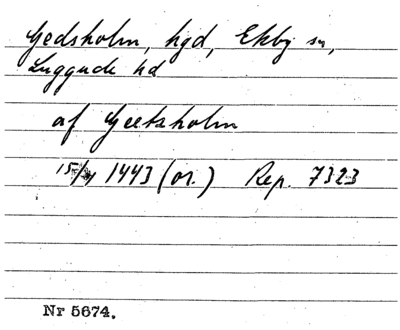 Gedsholm, hgd, Ekby sn,
Luggude hd
af Geetsholm
15/4 1443 (or.) Rep. 7323
Nr 5674.